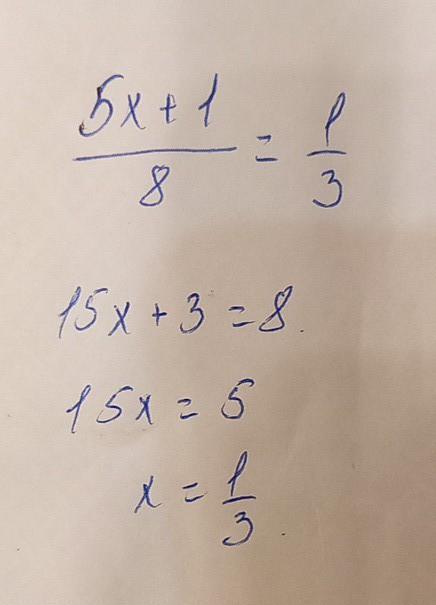 (5x+1)/8 = 1/3
15x+3=8.
15x=5
x=1/3.